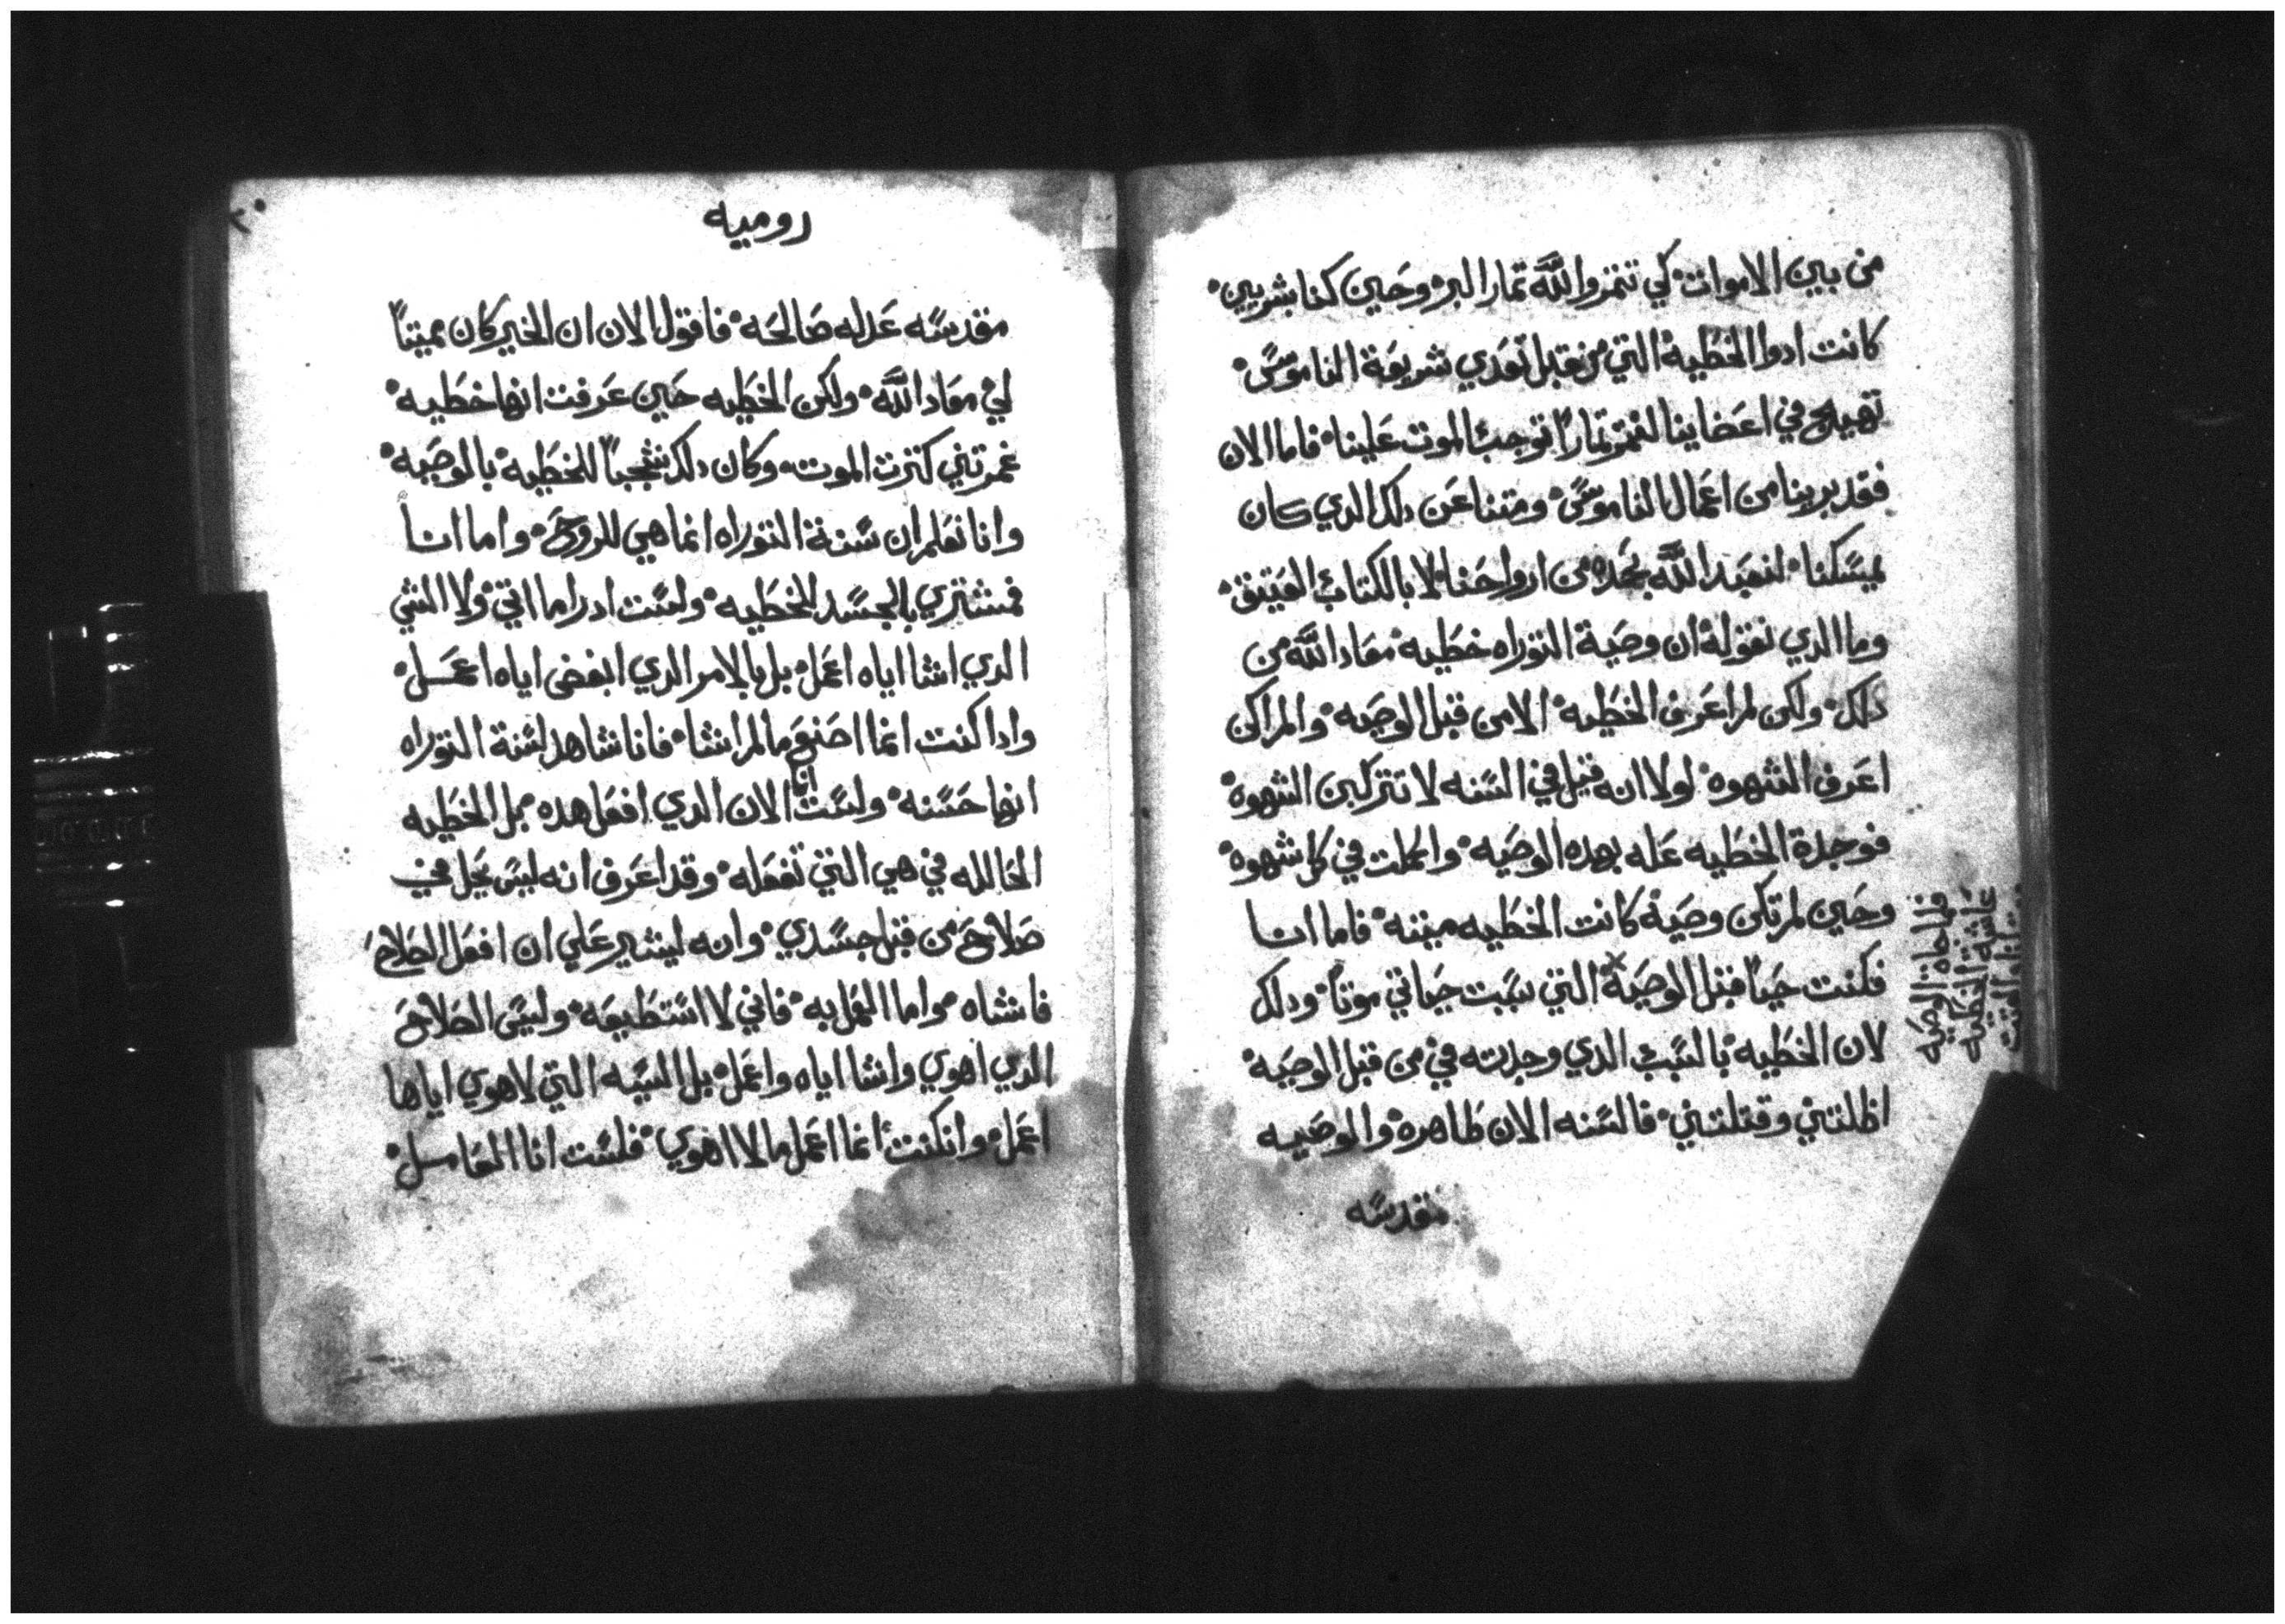 من بين الاموات كي تتمروا لله تمار البر وحين كنا بشريين
كانت ادوا الخطية التي من قبل تعدي شريعة الناموس
تهيج في اعضاينا لنتمر تمارا توجب الموت علينا فاما الان
فقد برينا من اعمال الناموس ومتنا عن دلك الدي كان
يمسكنا لنعبد الله بجده من ارواحنا لا بالكتاب العتيق
وما الدي نقوله ان وصية التوراه خطيه معاد الله من
دلك ولكن لم اعرف الخطيه الا من قبل الوصيه والم اكن
اعرف الشهوه لولا انه قيل في السنه لا تتركبن الشهوه
فوجدة الخطيه عله بهده الوصيه واكملت في كل شهوه
وحين لم تكن وصية كانت الخطيه ميته فاما انا
فكنت حيا قبل الوصية التي سببت حياتي موتا ودلك
لان الخطيه بالسبب الدي وجدته في من قبل الوصية
اظلتني وقتلتني فالسنه الان طاهره والوصيه
مقدسه
فلما جاة الوصيه
عاشة الخطيه
رومیه
٢٠
مقدسه عدله صالحه فاقول الان ان الخير كان مميتا
لي معاد الله ولكن الخطيه حين عرفت انها خطيه
غمرتني كترت الموت وكان دلك شجبا للخطيه بالوصيه
وانا نعلم ان سنة التوراه انما هي للروح واما انا
فمشتري بالجسد للخطيه ولست ادرا ما اتي ولا الشي
الدي اشا اياه اعمل بل بالامر الدي ابغض اياه اعمل
وادا كنت انما اصنع ما لم اشا فانا شاهد لسنة التوراه
انها حسنه ولست انا الان الدي افعل هده بل الخطيه
الحالله في هي التي تفعله وقد اعرف انه ليس يحل في
صلاح من قبل جسدي وانه ليشير علي ان افعل الصلاح
فاشاه واما العمل به فاني لا استطيعه وليس الصلاح
الدي اهوي واشا اياه واعمل بل السيه التي لاهوي اياها
اعمل وانكنت انما اعمل ما لا اهوي فلست انا العامل